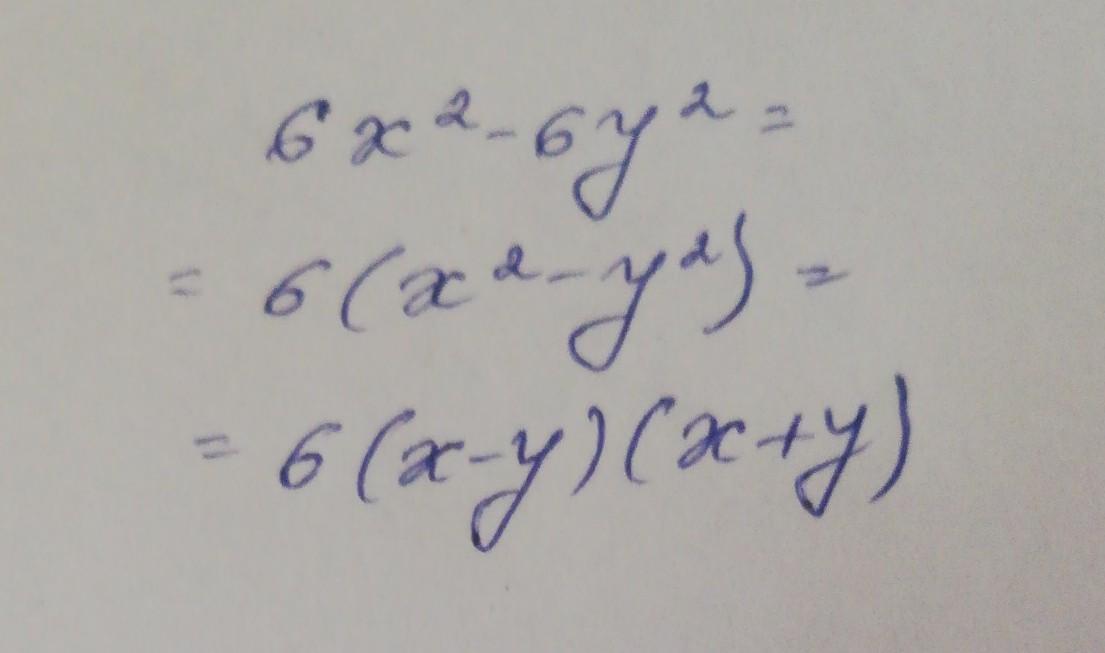 6x² - 6y² =
= 6(x² - y²) =
= 6(x-y)(x+y)